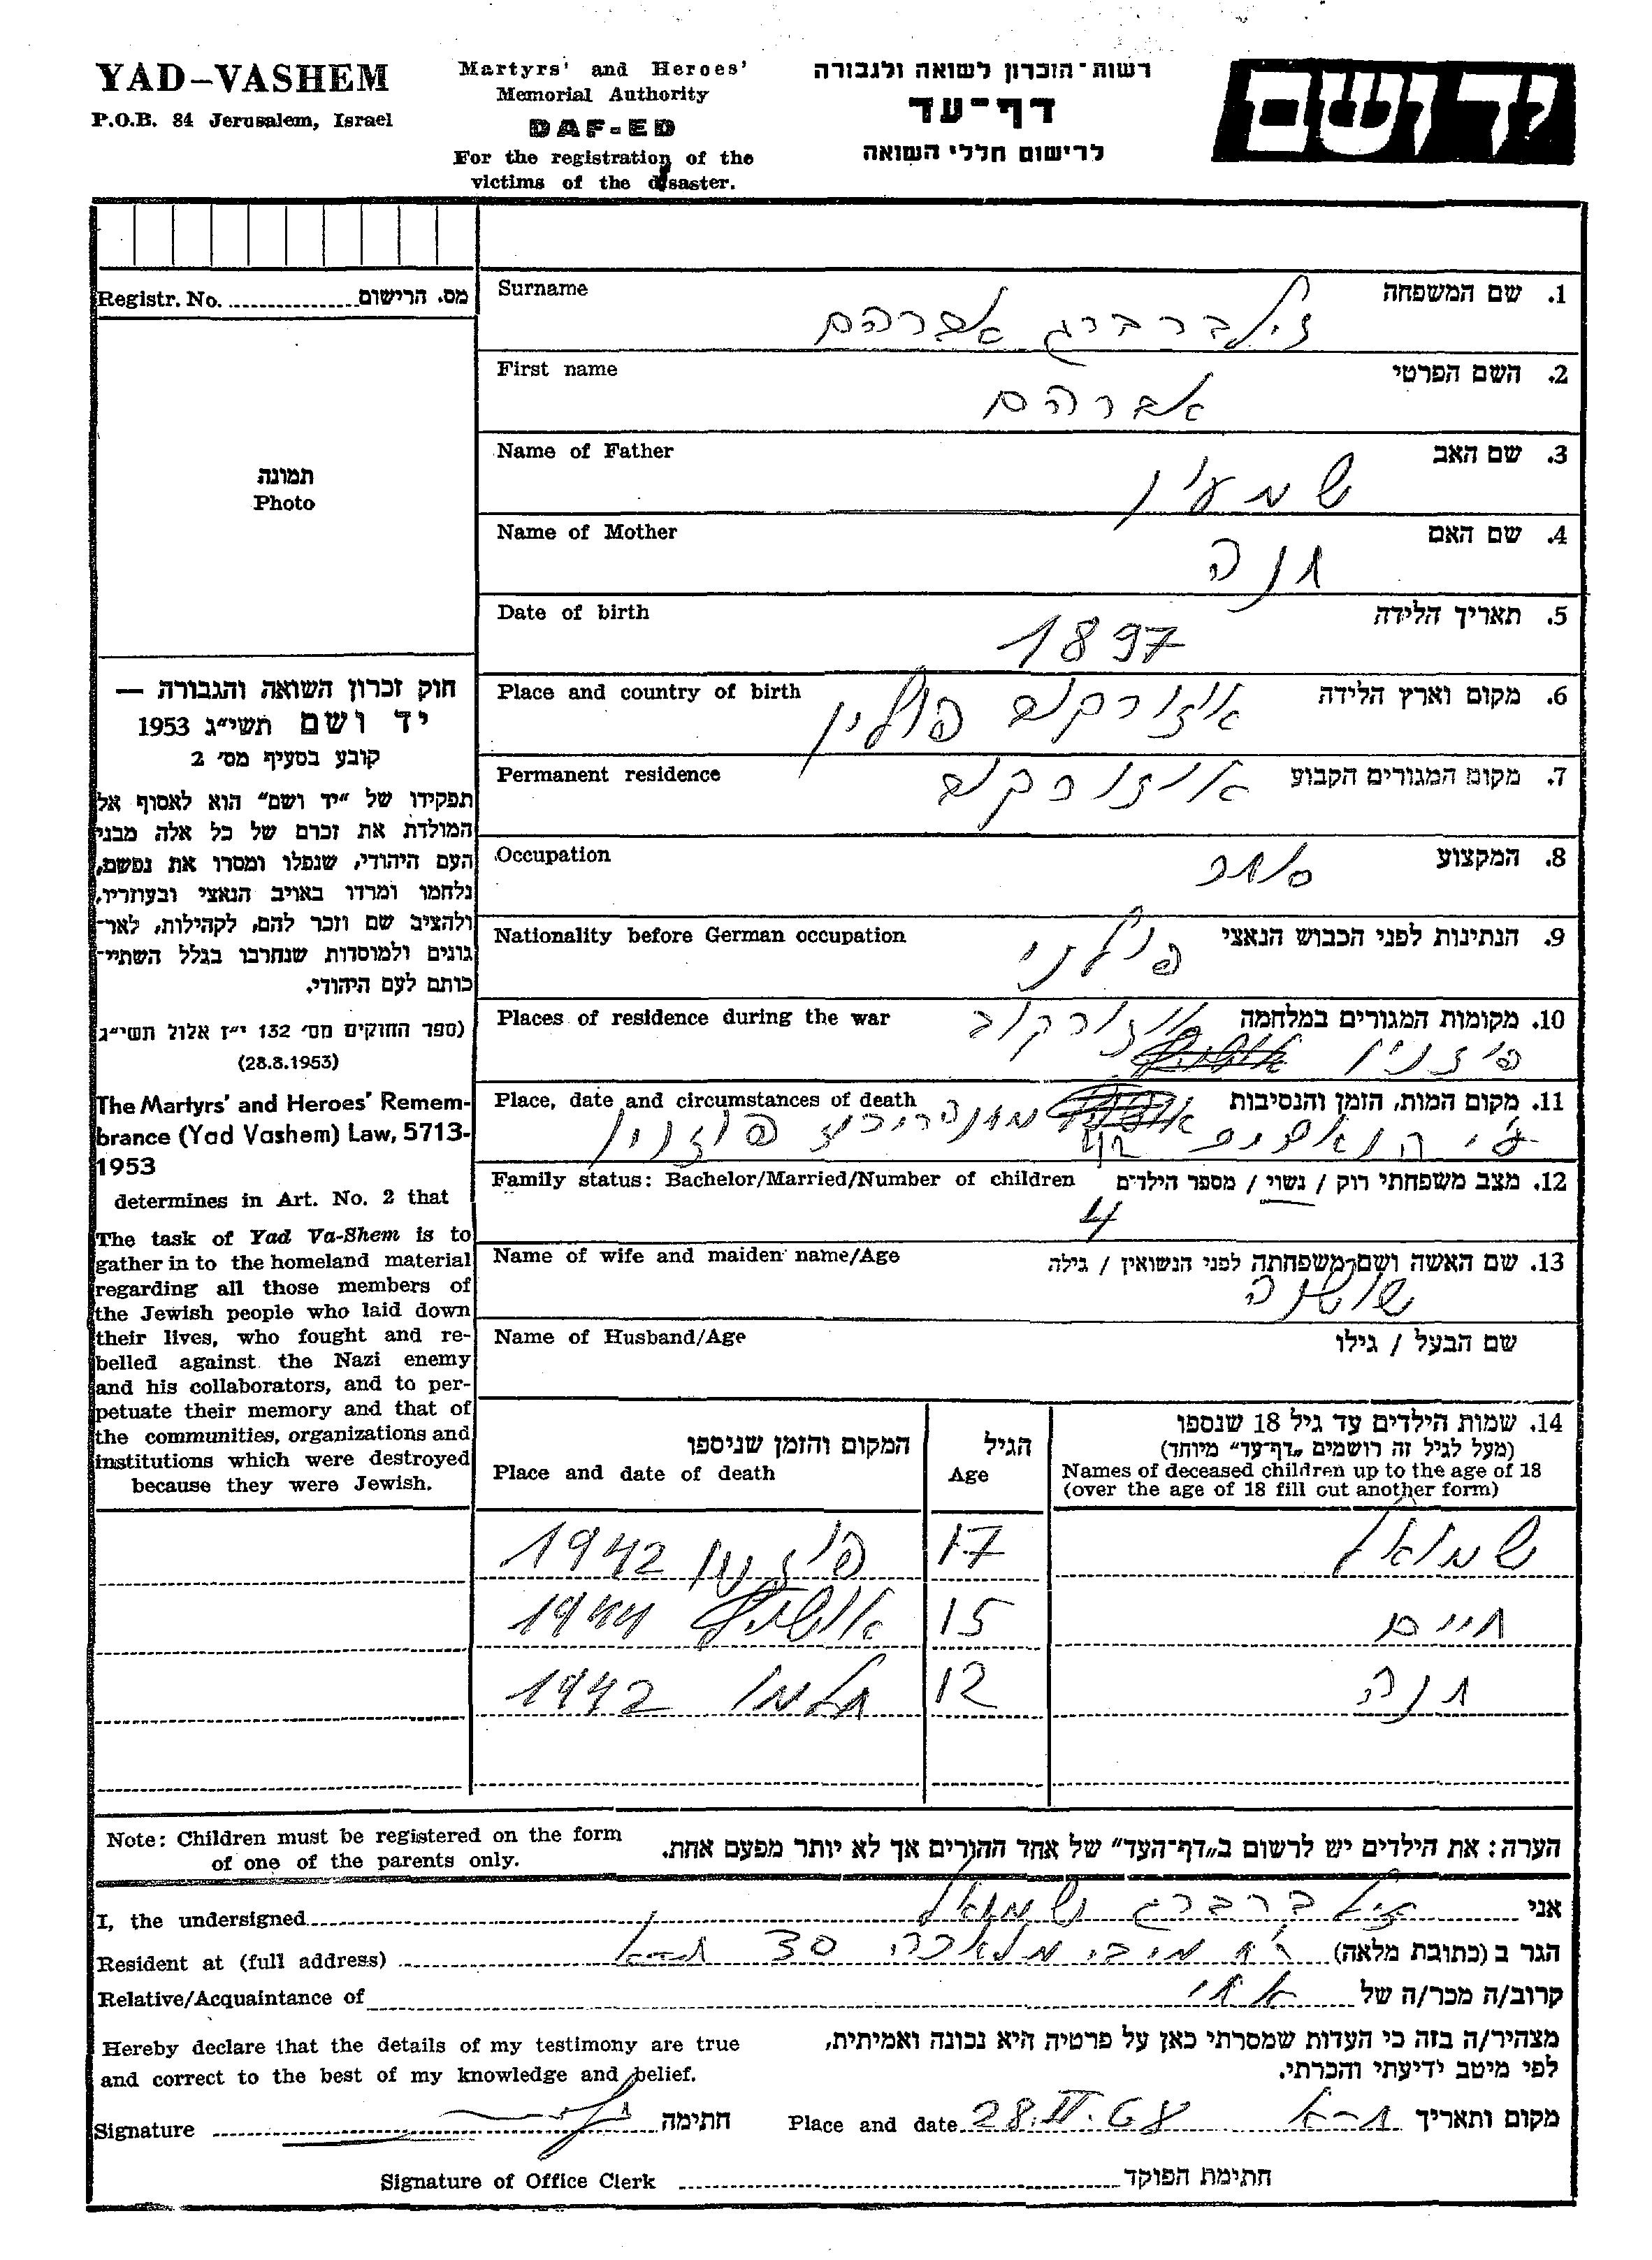 YAD-VASHEM
P.O.B. 84 Jerusalem, Israel
Martyrs' and Heroes'
Memorial Authority
DAF-ED
For the registration of the
victims of the disaster.
רשות-הזכרון לשואה ולגבורה
דף-עד
לרישום חללי השואה
יד ושם
Registr. No. מס. הרישום
תמונה
Photo
חוק זכרון השואה והגבורה —
יד ושם תשי״ג 1953
קובע בסעיף מס׳ 2
תפקידו של ״יד ושם״ הוא לאסוף אל
המולדת את זכרם של כל אלה מבני
העם היהודי, שנפלו ומסרו את נפשם,
נלחמו ומרדו באויב הנאצי ובעוזריו,
ולהציב שם וזכר להם, לקהילות, לאר-
גונים ולמוסדות שנחרבו בגלל השתיי-
כותם לעם היהודי.
(ספר החוקים מס׳ 132 י״ז אלול תשי״ג
(28.8.1953)
The Martyrs' and Heroes' Remem-
brance (Yad Vashem) Law, 5713-
1953
determines in Art. No. 2 that
The task of Yad Va-Shem is to
gather in to the homeland material
regarding all those members of
the Jewish people who laid down
their lives, who fought and re-
belled against the Nazi enemy
and his collaborators, and to per-
petuate their memory and that of
the communities, organizations and
institutions which were destroyed
because they were Jewish.
Surname 1. שם המשפחה
זילברברג אברהם
First name 2. השם הפרטי
אברהם
Name of Father 3. שם האב
שמעון
Name of Mother 4. שם האם
חנה
Date of birth 5. תאריך הלידה
1897
Place and country of birth 6. מקום וארץ הלידה
אוזורקוב פולין
Permanent residence 7. מקום המגורים הקבוע
אוזורקוב
Occupation 8. המקצוע
סוחר
Nationality before German occupation 9. הנתינות לפני הכבוש הנאצי
פולני
Places of residence during the war 10. מקומות המגורים במלחמה
אוזורקוב
פוזנין
Place, date and circumstances of death 11. מקום המות, הזמן והנסיבות
פוזנין
ע״י הנאצים 42
Family status: Bachelor/Married/Number of children 12. מצב משפחתי רוק / נשוי / מספר הילדים
4
Name of wife and maiden name/Age 13. שם האשה ושם-משפחתה לפני הנשואין / גילה
שושנה
Name of Husband/Age שם הבעל / גילו
14. שמות הילדים עד גיל 18 שנספו
(מעל לגיל זה רושמים ״דף-עד״ מיוחד)
Names of deceased children up to the age of 18
(over the age of 18 fill out another form)
הגיל
Age
המקום והזמן שניספו
Place and date of death
שמואל 17 פוזנין 1942
חיים 15 אושויץ 1944
חנה 12 חלמנו 1942
Note: Children must be registered on the form
of one of the parents only.
הערה: את הילדים יש לרשום ב״דף-העד״ של אחד ההורים אך לא יותר מפעם אחת.
I, the undersigned זילברברג שמואל אני
Resident at (full address) רח׳ מלאכה 30 ת-א הגר ב (כתובת מלאה)
Relative/Acquaintance of אחי קרוב/ה מכר/ה של
Hereby declare that the details of my testimony are true
and correct to the best of my knowledge and belief.
מצהיר/ה בזה כי העדות שמסרתי כאן על פרטיה היא נכונה ואמיתית,
לפי מיטב ידיעתי והכרתי.
Signature חתימה
Place and date 28.IV.68 ת-א מקום ותאריך
Signature of Office Clerk חתימת הפוקד